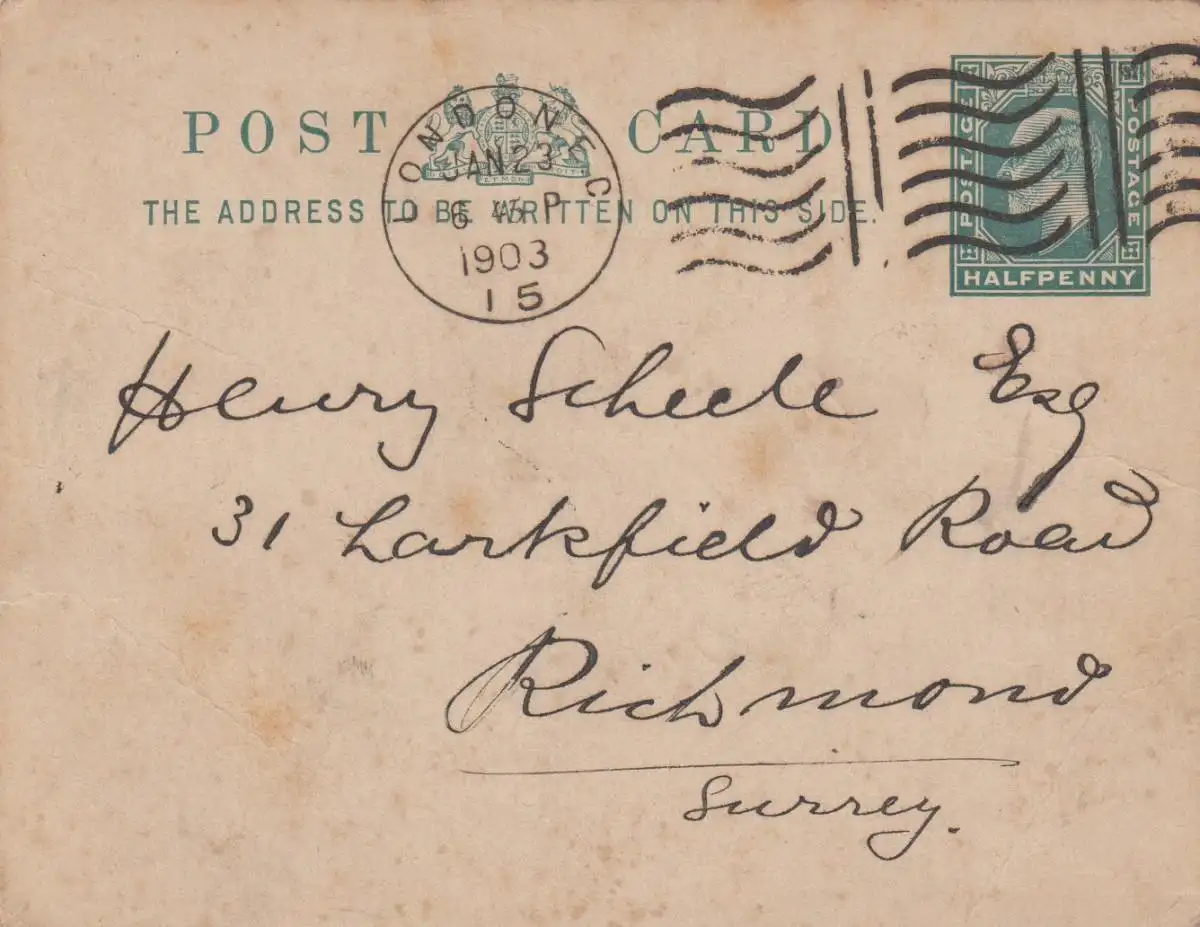 POST CARD
THE ADDRESS TO BE WRITTEN ON THIS SIDE.
LONDON E C
JAN 23
6 45 P
1903
15
POSTAGE
HALFPENNY
Henry Scheele Esq
31 Larkfield Road
Richmond
Surrey.